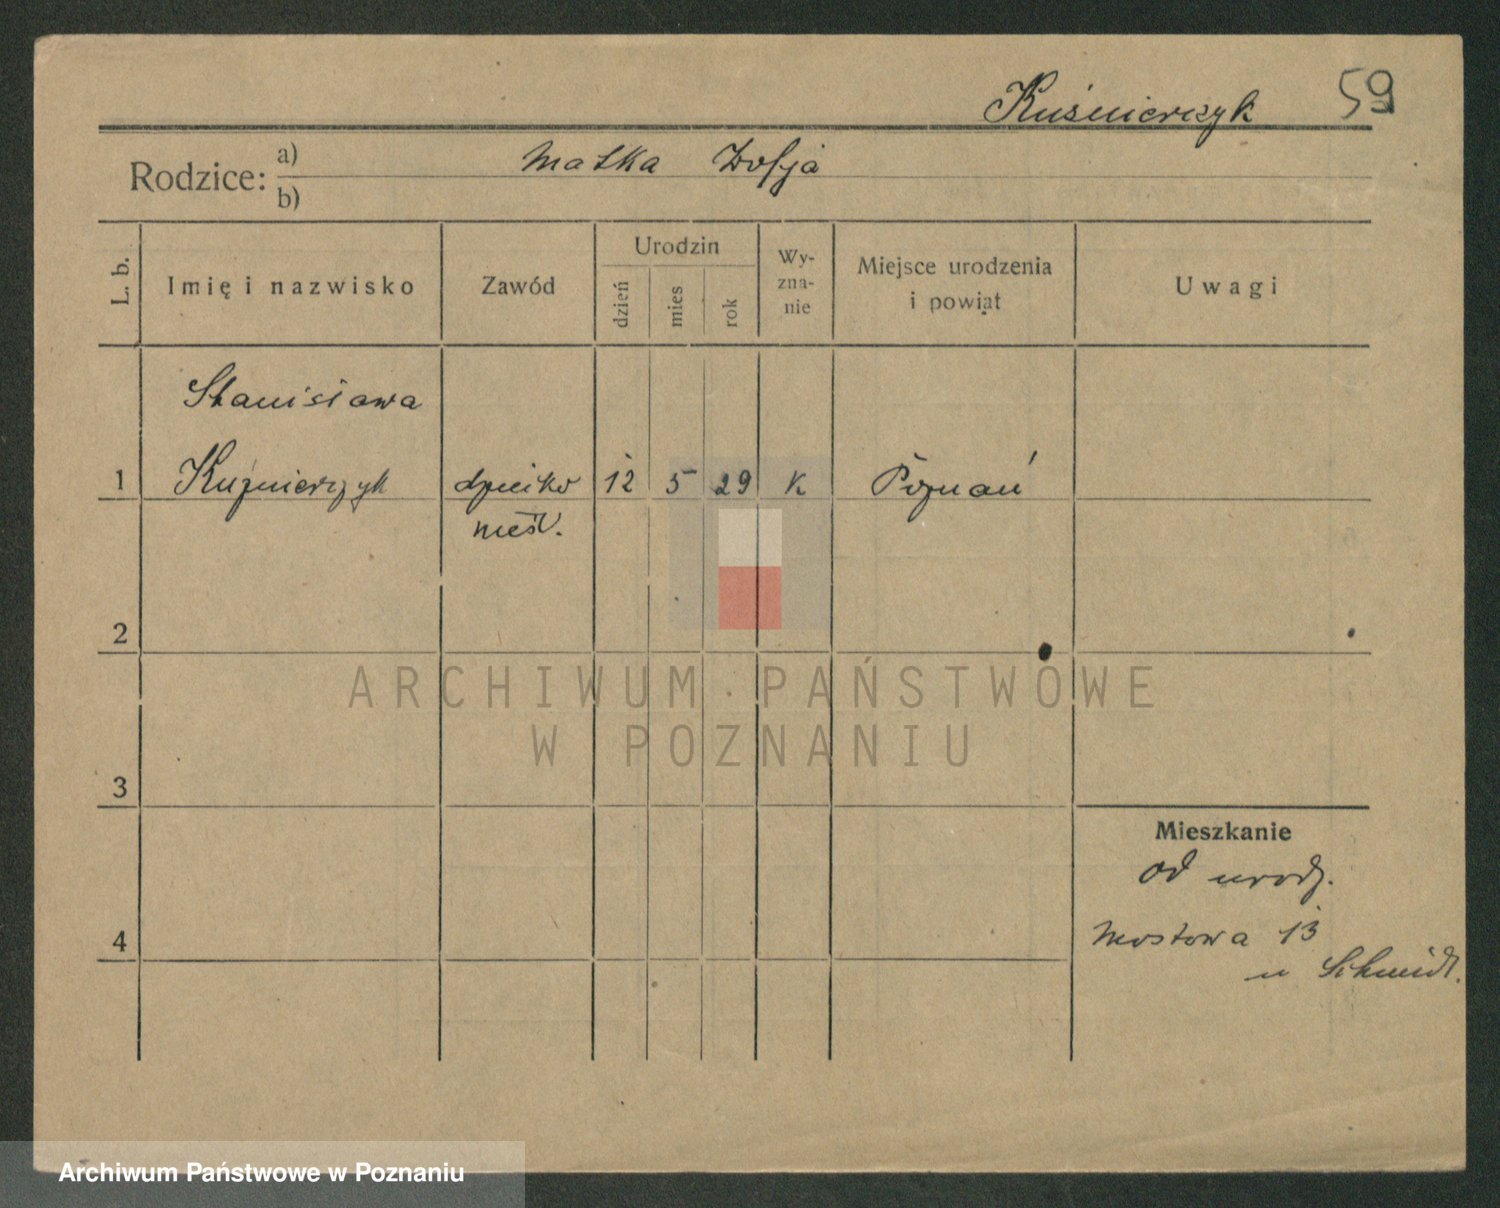 Kuśnierczyk 59
Rodzice: a) Matka Zofja
b)
L. b. Imię i nazwisko Zawód Urodzin dzień mies rok Wy-zna-nie Miejsce urodzenia i powiąt Uwagi
Stanisława
1 Kuźnierzyk dziecko 12 5 29 K Poznań
nieśl.
2
ARCHIWUM PAŃSTWOWE
W POZNANIU
3
Mieszkanie
od urodz.
4 Mostowa 13
u Schmidt.
Archiwum Państwowe w Poznaniu